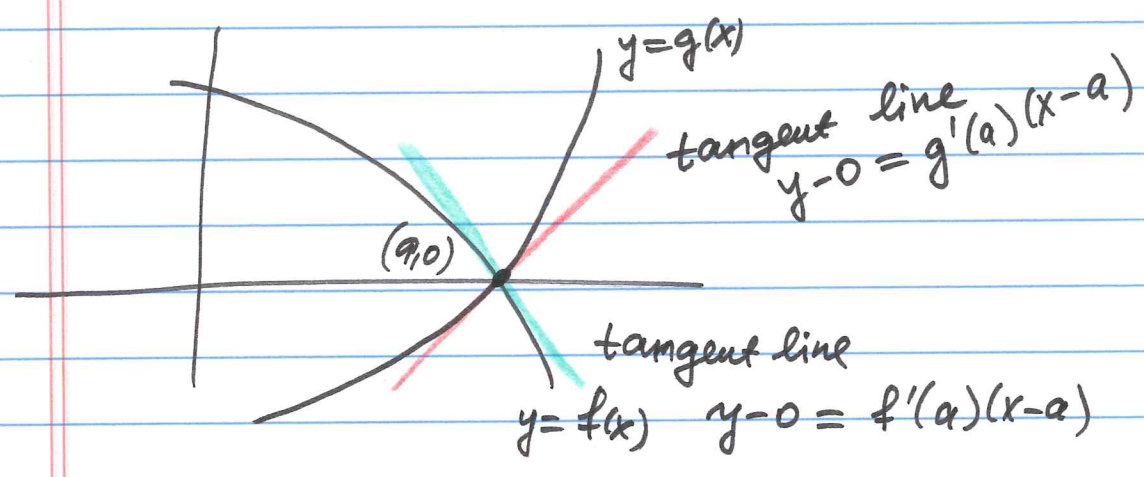 y=g(x)
tangent line
y-0 = g'(a)(x-a)
(a,0)
tangent line
y=f(x) y-0 = f'(a)(x-a)